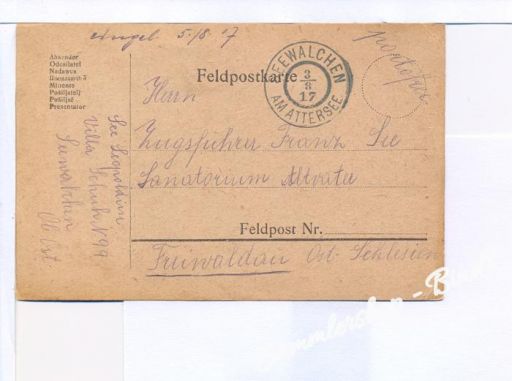 eingel 5./8. 17
portofrei
Absender
Odesílatel
Nadawca
Mittente
Pošiljatelj
Pošiljač
Presentator
Feldpostkarte
SEEWALCHEN
3
8
17
AM ATTERSEE
Herrn
Zugsführer Franz See
Sanatorium Altvater
Feldpost Nr.
Freiwaldau Öst. Schlesien
See Leopoldine
Villa Schuh N 99
Seewalchen
Ob. Öst